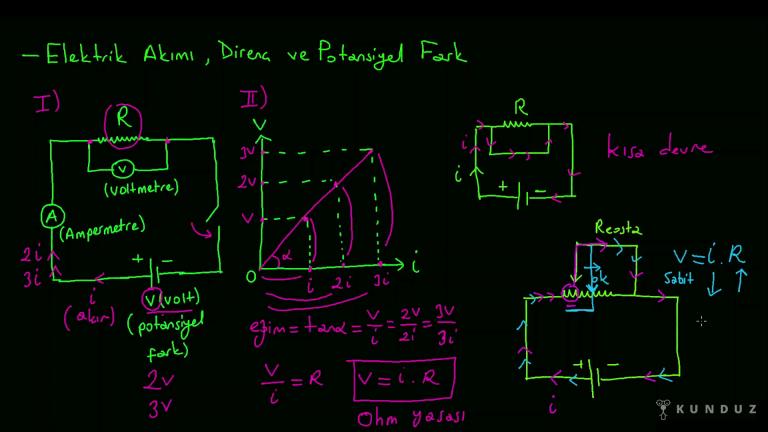 — Elektrik Akımı, Direnç ve Potansiyel Fark
I)
R
V
(voltmetre)
A
(Ampermetre)
2i
3i
i
(akım)
+ −
V (volt)
(potansiyel
fark)
2V
3V
II)
V
3V
2V
V
α
O
i 2i 3i
i
eğim = tanα = V/i = 2V/2i = 3V/3i
V/i = R
V = i . R
Ohm yasası
R
i
i
+ −
kısa devre
Reosta
ok
V = i . R
Sabit
+ −
i
KUNDUZ